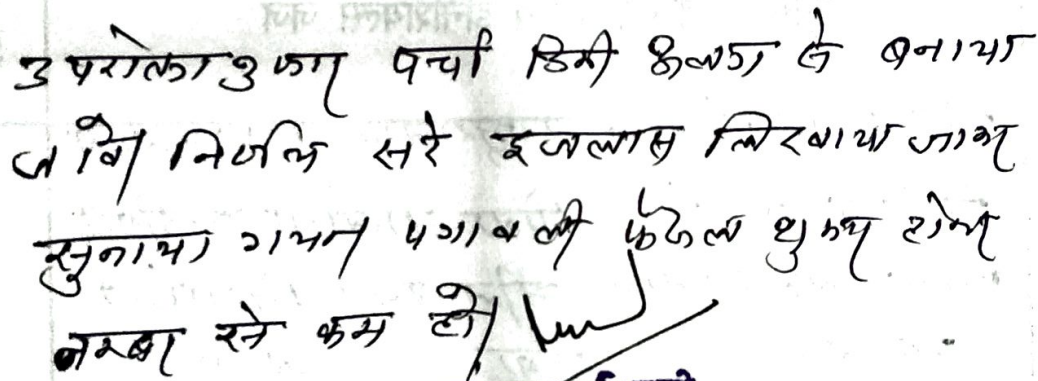 उपरोक्तानुसार पर्चा डिक्री अलग से बनाया
जावे। निर्णय सरे इजलास लिखाया जाकर
सुनाया गया। पत्रावली फैसल शुमार होकर
नम्बर से कम हो।